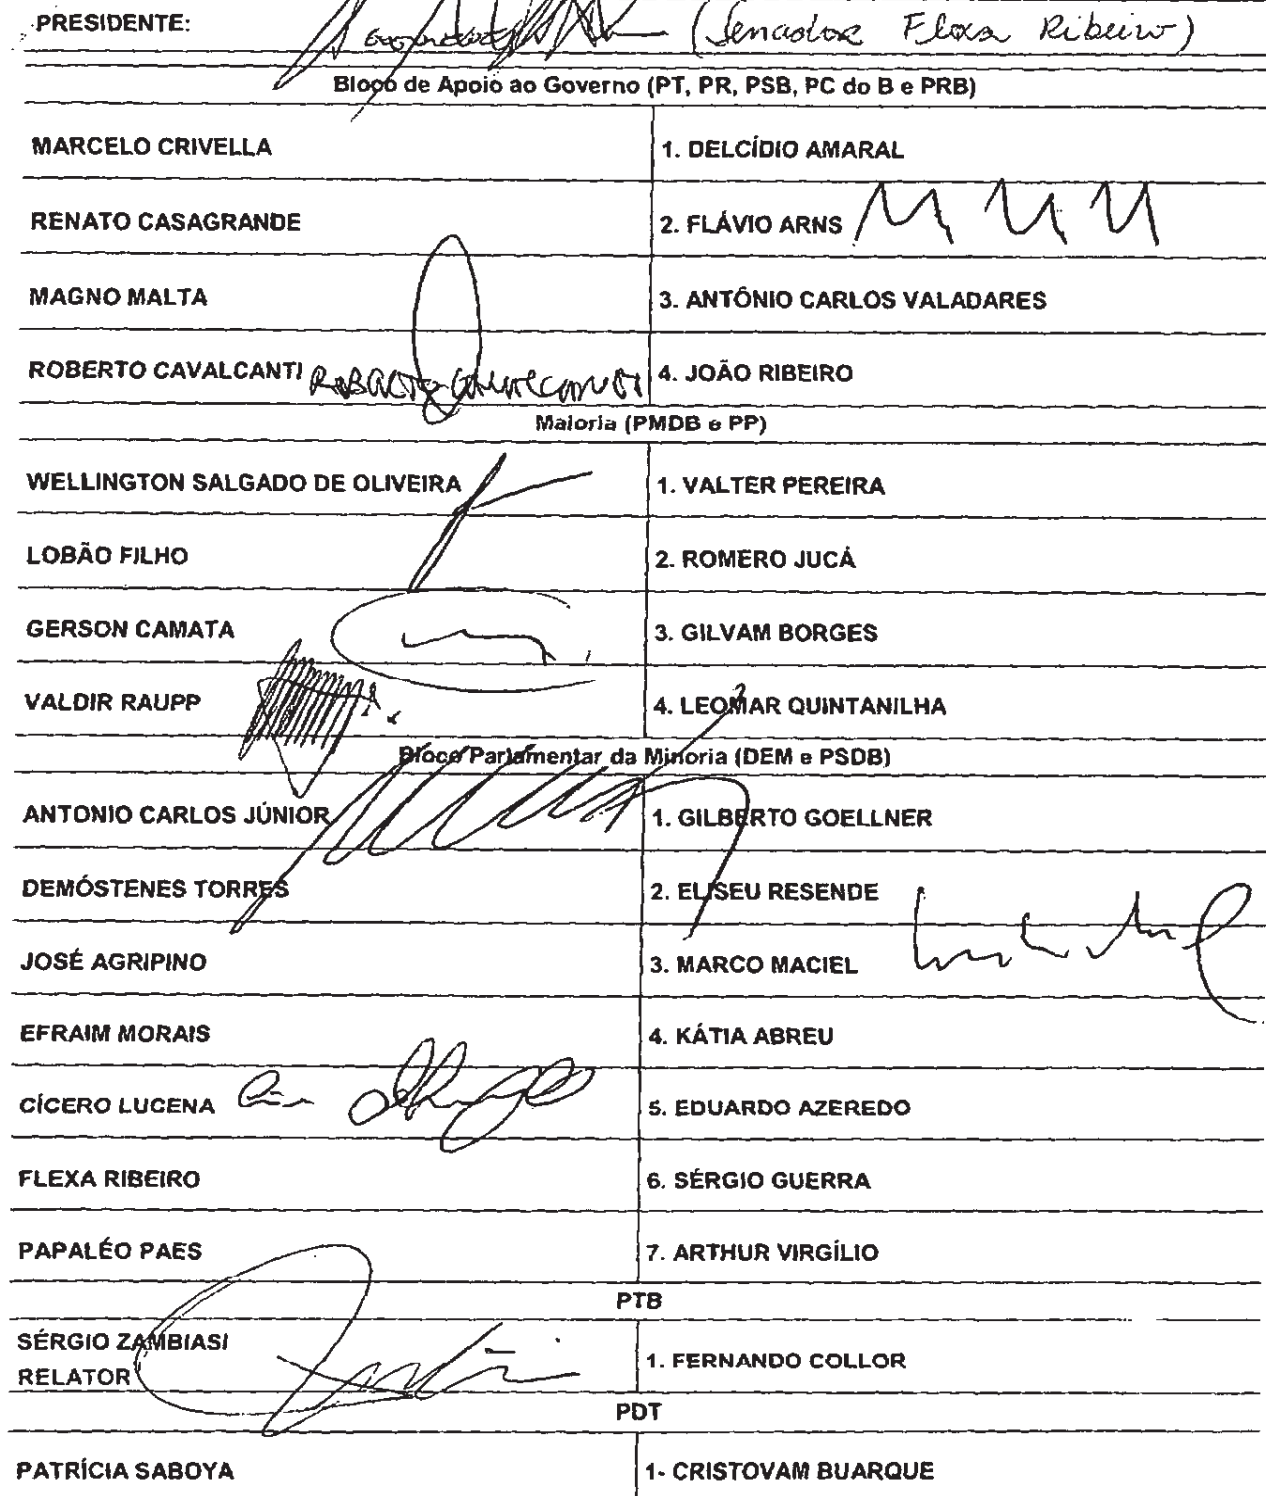 PRESIDENTE: (Senador Flexa Ribeiro)
Bloco de Apoio ao Governo (PT, PR, PSB, PC do B e PRB)
MARCELO CRIVELLA 1. DELCÍDIO AMARAL
RENATO CASAGRANDE 2. FLÁVIO ARNS
MAGNO MALTA 3. ANTÔNIO CARLOS VALADARES
ROBERTO CAVALCANTI ROBERTO CAVALCANTI 4. JOÃO RIBEIRO
Maioria (PMDB e PP)
WELLINGTON SALGADO DE OLIVEIRA 1. VALTER PEREIRA
LOBÃO FILHO 2. ROMERO JUCÁ
GERSON CAMATA 3. GILVAM BORGES
VALDIR RAUPP 4. LEOMAR QUINTANILHA
Bloco Parlamentar da Minoria (DEM e PSDB)
ANTONIO CARLOS JÚNIOR 1. GILBERTO GOELLNER
DEMÓSTENES TORRES 2. ELISEU RESENDE
JOSÉ AGRIPINO 3. MARCO MACIEL
EFRAIM MORAIS 4. KÁTIA ABREU
CÍCERO LUCENA 5. EDUARDO AZEREDO
FLEXA RIBEIRO 6. SÉRGIO GUERRA
PAPALÉO PAES 7. ARTHUR VIRGÍLIO
PTB
SÉRGIO ZAMBIASI
RELATOR 1. FERNANDO COLLOR
PDT
PATRÍCIA SABOYA 1- CRISTOVAM BUARQUE